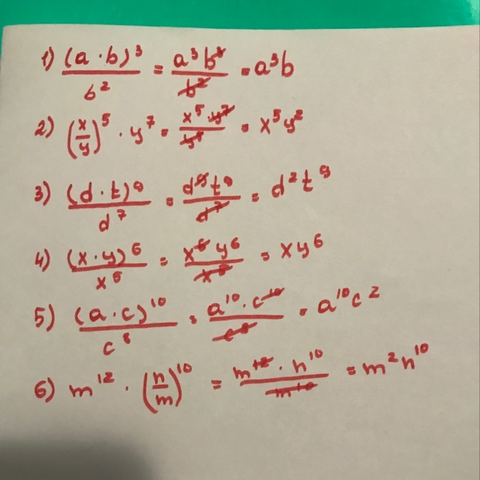 1) (a · b)³ / b² = a³b³ / b² = a³b
2) (x/y)⁵ · y⁷ = x⁵ · y⁷ / y⁵ = x⁵y²
3) (d · t)⁹ / d⁷ = d⁹t⁹ / d⁷ = d²t⁹
4) (x · y)⁶ / x⁵ = x⁶y⁶ / x⁵ = xy⁶
5) (a · c)¹⁰ / c⁸ = a¹⁰ · c¹⁰ / c⁸ = a¹⁰c²
6) m¹² · (n/m)¹⁰ = m¹² · n¹⁰ / m¹⁰ = m²n¹⁰